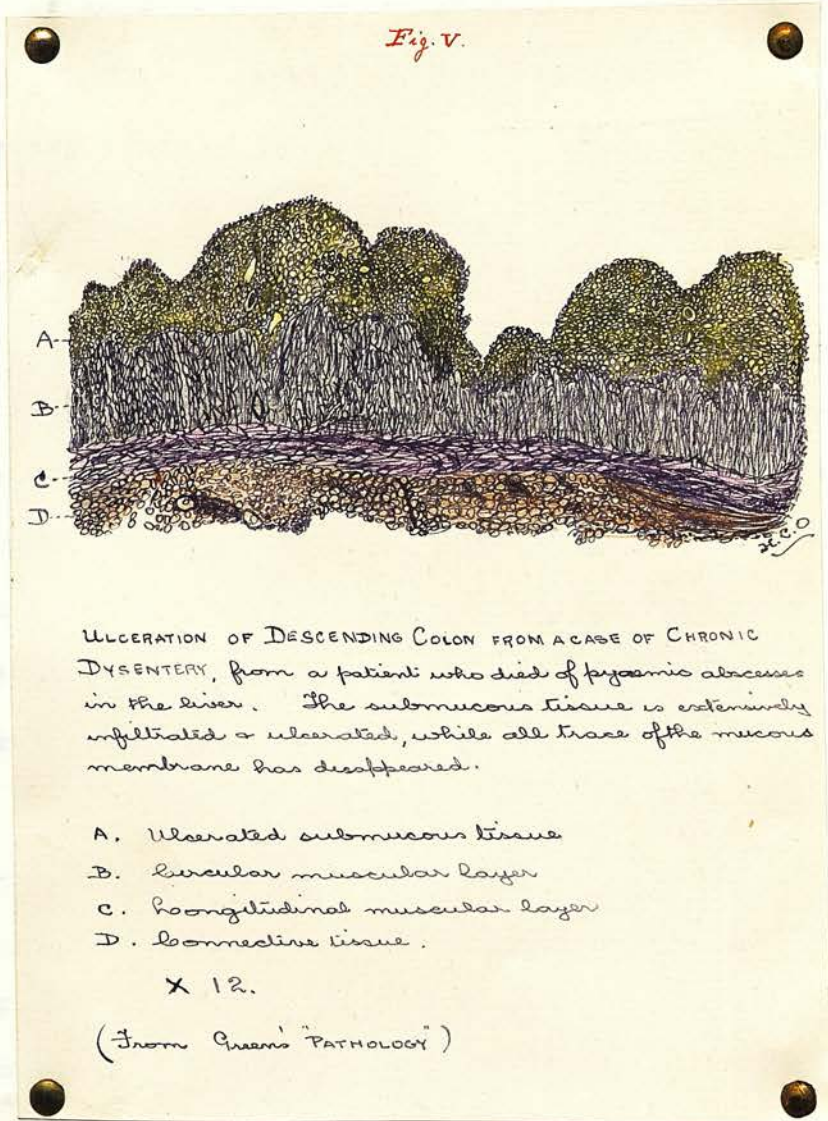 Fig. V.
A
B
C
D
H.C.O
ULCERATION OF DESCENDING COLON FROM A CASE OF CHRONIC
DYSENTERY, from a patient who died of pyaemic abscesses
in the liver. The submucous tissue is extensively
infiltrated & ulcerated, while all trace of the mucous
membrane has disappeared.
A. Ulcerated submucous tissue
B. Circular muscular layer
C. Longitudinal muscular layer
D. Connective tissue.
X 12.
(From Green's "PATHOLOGY")